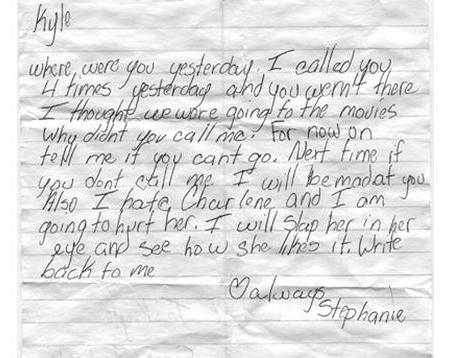 Kyle
where, were you yesterday. I called you
4 times yesterday and you wernt there
I thought we were going to the movies
why didnt you call me. For now on
tell me if you cant go. Next time if
you dont call me I will be mad at you
Also I hate Charlene and I am
going to hurt her. I will slap her in her
eye and see how she likes it. Write
back to me
♡always
Stephanie